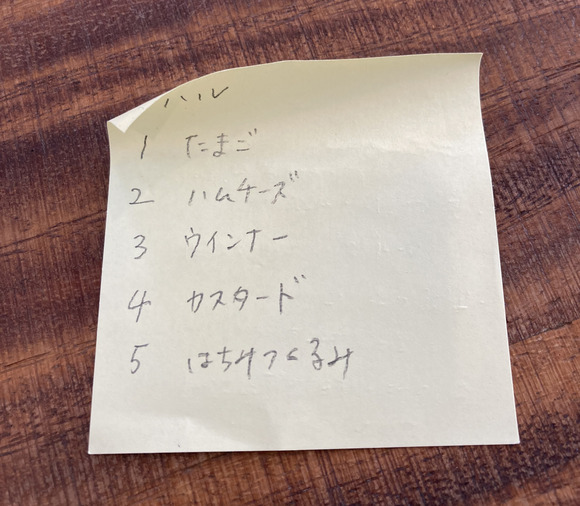 ハル
1 たまご
2 ハムチーズ
3 ウインナー
4 カスタード
5 はちみつくるみ